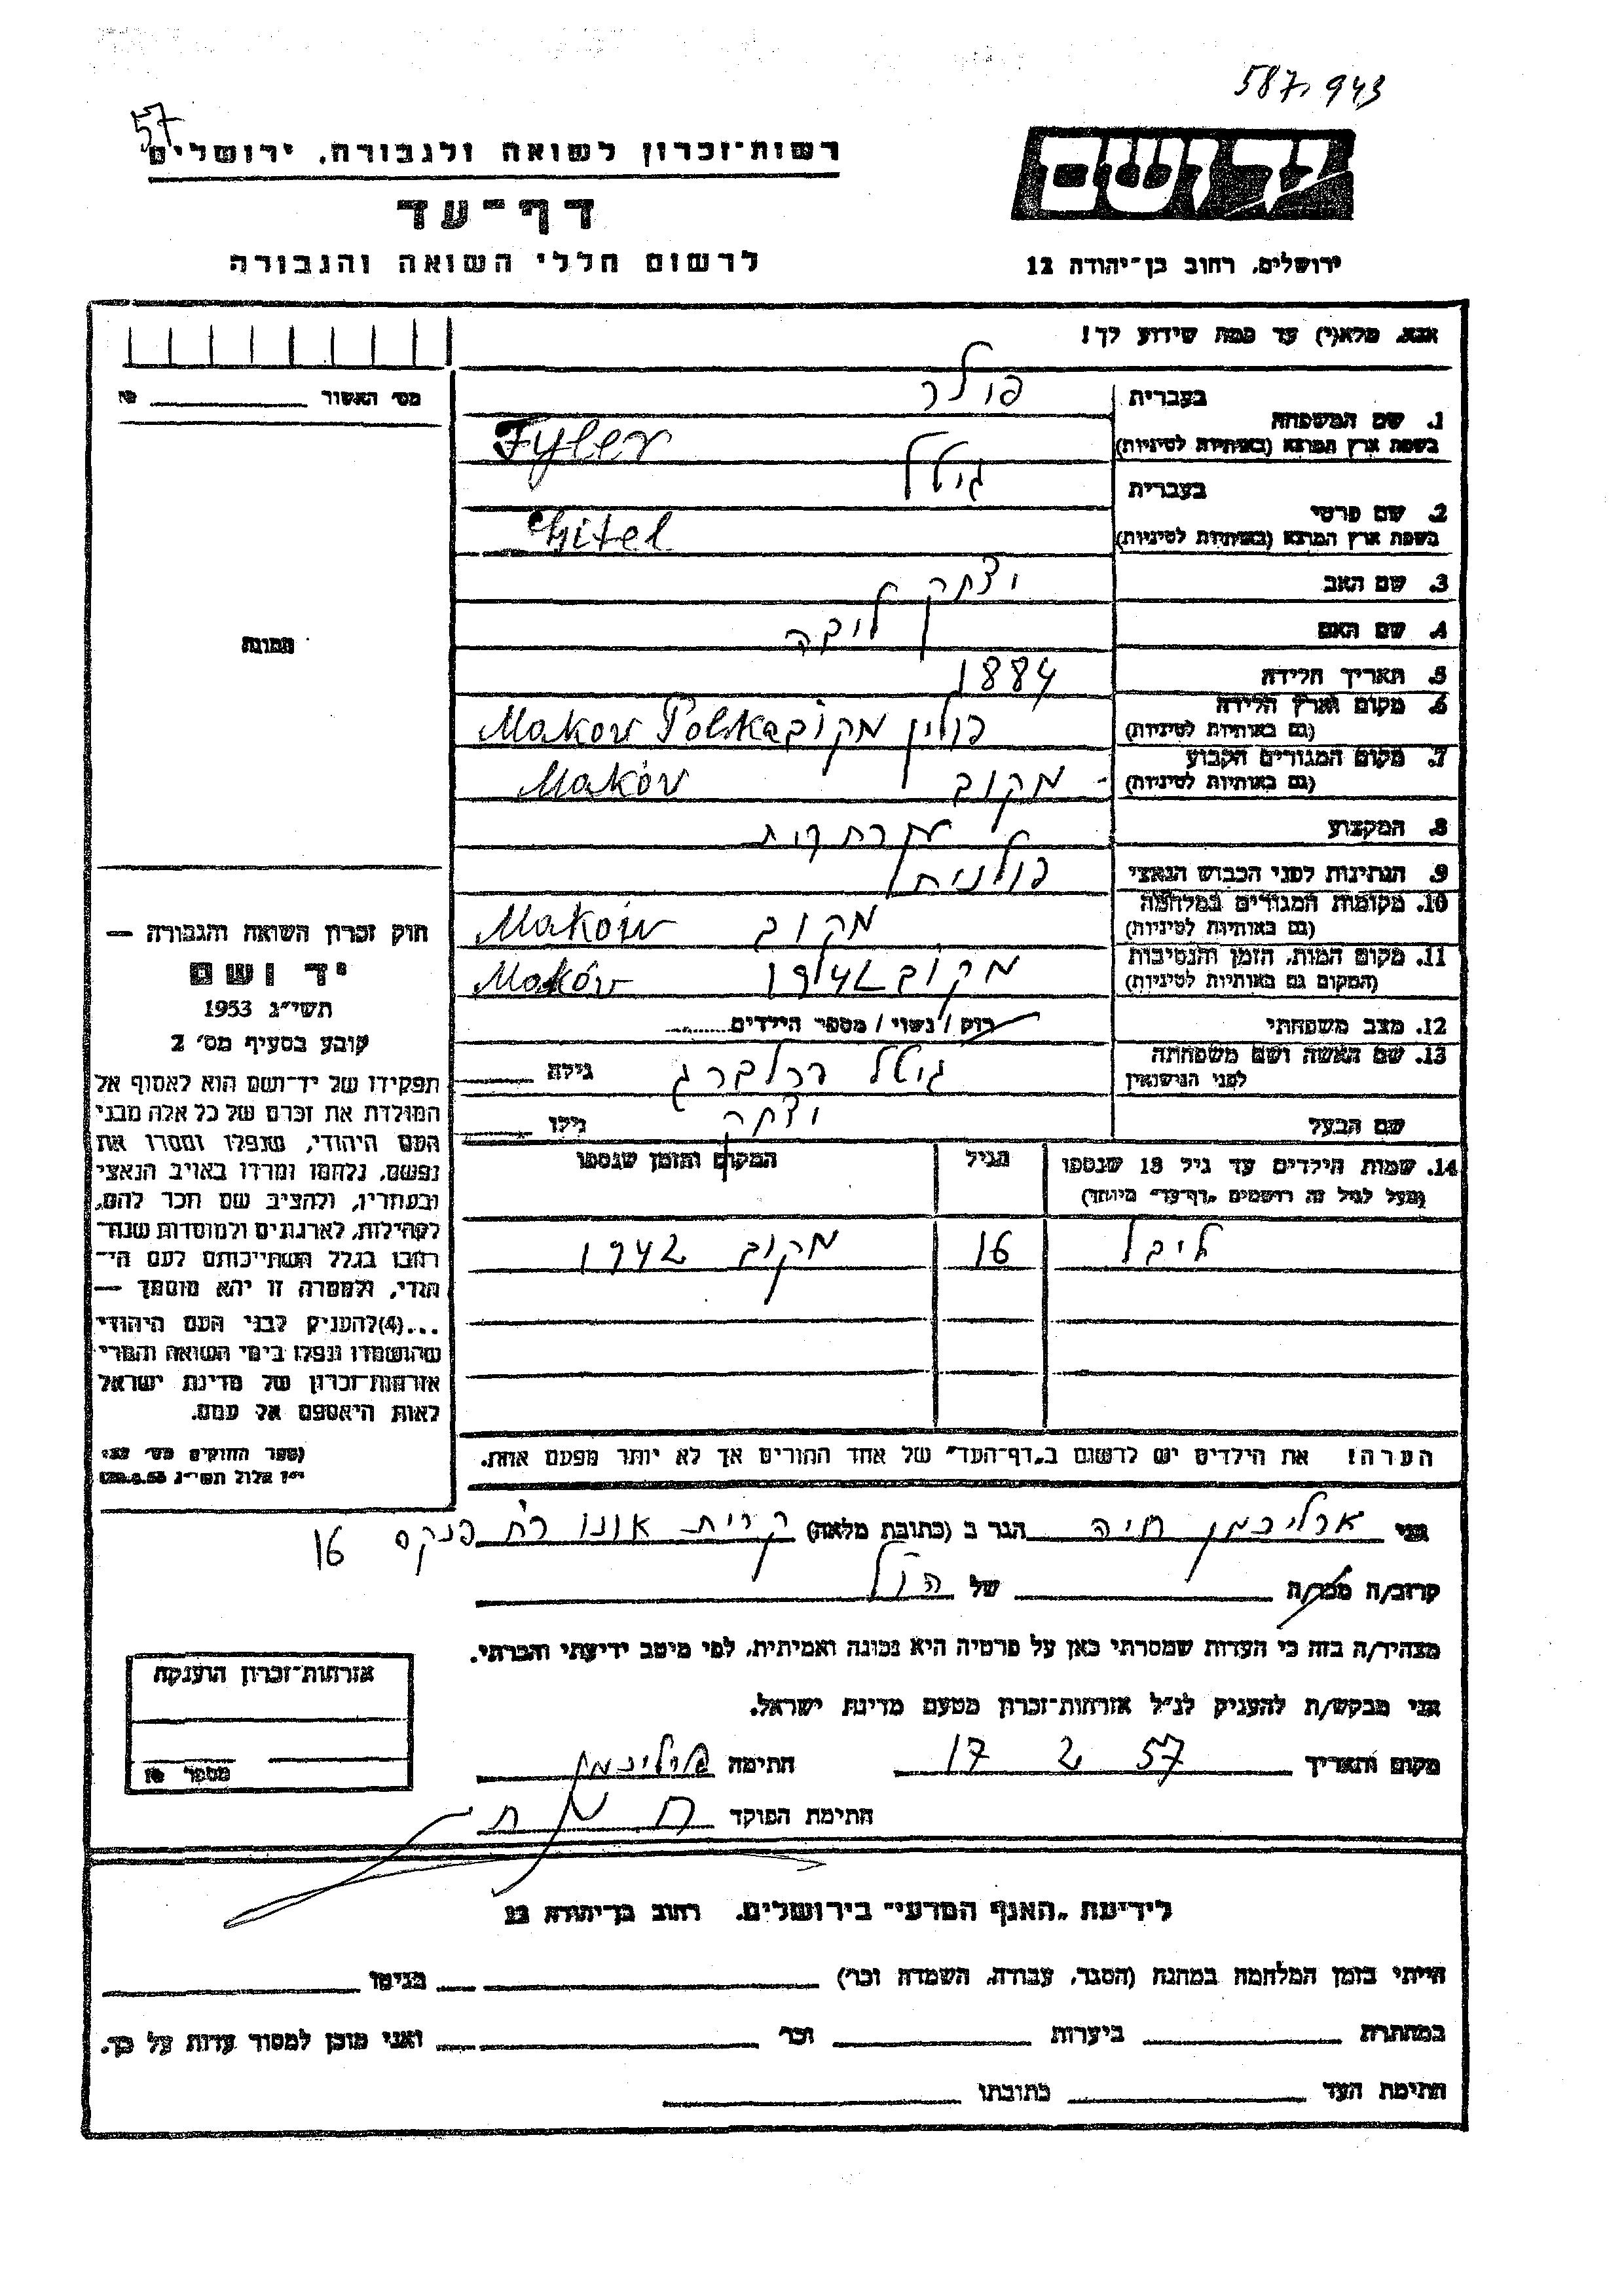 587,943
57
יד ושם
רשות־זכרון לשואה ולגבורה, ירושלים
דף־עד
לרשום חללי השואה והגבורה
ירושלים, רחוב בן־יהודה 12
אנא, מלא(י) עד כמה שידוע לך!
מס׳ האשור
1. שם המשפחה
בעברית
פולר
בשפת ארץ המוצא (באותיות לטיניות)
Fyler
2. שם פרטי
בעברית
גיטל
בשפת ארץ המוצא (באותיות לטיניות)
Chitel
3. שם האב יצחק
4. שם האם ליבה
5. תאריך הלידה 1884
6. מקום וארץ הלידה
(גם באותיות לטיניות)
פולין מקוב Makow Polska
7. מקום המגורים הקבוע
(גם באותיות לטיניות)
מקוב Maków
8. המקצוע
9. הנתינות לפני הכבוש הנאצי פולנית
10. מקומות המגורים במלחמה
(גם באותיות לטיניות)
מקוב Maków
11. מקום המות, הזמן והנסיבות
(המקום גם באותיות לטיניות)
מקוב 1942 Maków
12. מצב משפחתי רוק / נשוי / מספר הילדים
13. שם האשה ושם משפחתה
לפני הנישואין
גיטל גולדברג גילה
שם הבעל יצחק גילו
14. שמות הילדים עד גיל 18 שנספו
(מעל לגיל זה רושמים „דף־עד״ מיוחד)
הגיל
המקום והזמן שנספו
ליבל 16 מקוב 1942
הערה! את הילדים יש לרשום ב„דף־העד״ של אחד ההורים אך לא יותר מפעם אחת.
תמונה
חוק זכרון השואה והגבורה —
יד ושם
תשי״ג 1953
קובע בסעיף מס׳ 2
תפקידו של יד־ושם הוא לאסוף אל
המולדת את זכרם של כל אלה מבני
העם היהודי, שנפלו ומסרו את
נפשם, נלחמו ומרדו באויב הנאצי
ובעוזריו, ולהציב שם וזכר להם,
לקהילות, לארגונים ולמוסדות שנח־
רבו בגלל השתייכותם לעם הי־
הודי, ולמטרה זו יהא מוסמך —
...(4)להעניק לבני העם היהודי
שהושמדו ונפלו בימי השואה והמרי
אזרחות־זכרון של מדינת ישראל
לאות היאספם אל עמם.
(ספר החוקים מס׳ 132,
י״ז אלול תשי״ג 28.8.53)
אני חיה הגר ב (כתובת מלאה) קרית אונו רח׳ פנקס 16
קרוב/ה מכר/ה של הנ״ל
מצהיר/ה בזה כי העדות שמסרתי כאן על פרטיה היא נכונה ואמיתית, לפי מיטב ידיעתי והכרתי.
אני מבקש/ת להעניק לנ״ל אזרחות־זכרון מטעם מדינת ישראל.
מקום ותאריך 17 2 57 חתימה
חתימת הפוקד
אזרחות־זכרון הוענקה
מספר
לידיעת „האגף המדעי״ בירושלים, רחוב בן־יהודה 12
הייתי בזמן המלחמה במחנה (הסגר, עבודה, השמדה וכו׳) בגיטו
במחתרת ביערות וכו׳ ואני מוכן למסור עדות על כך.
חתימת העד כתובתו